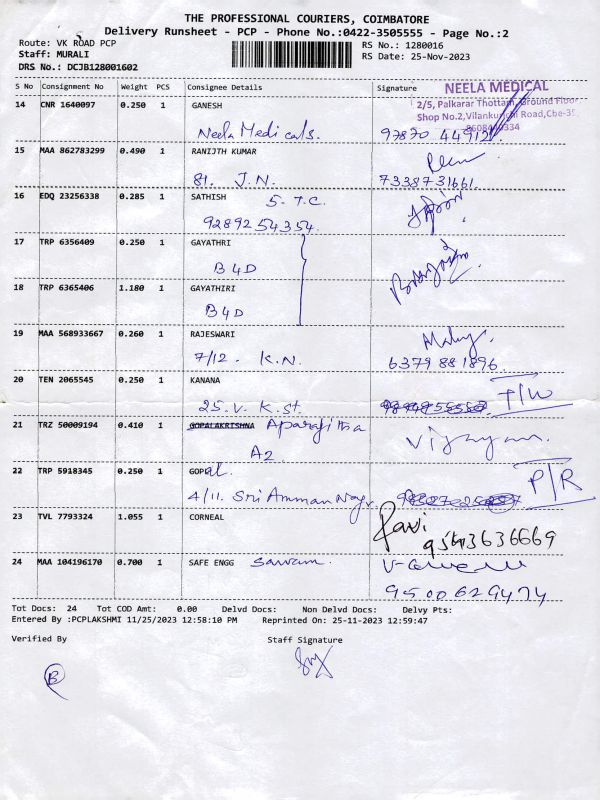 THE PROFESSIONAL COURIERS, COIMBATORE
Delivery Runsheet - PCP - Phone No.:0422-3505555 - Page No.:2
Route: VK ROAD PCP
RS No.: 1280016
Staff: MURALI
RS Date: 25-Nov-2023
DRS No.: DCJB128001602
S No Consignment No Weight PCS Consignee Details Signature
NEELA MEDICAL
14 CNR 1640097 0.250 1 GANESH
2/5, Palkarar Thottam, Ground Floor
Shop No.2, Vilankurichi Road, Cbe-35.
Neela Medicals. 97870 44912
15 MAA 862783299 0.490 1 RANIJTH KUMAR
81. J.N. 7338731661.
16 EDQ 23256338 0.285 1 SATHISH
5- T.C.
9289254354
17 TRP 6356409 0.250 1 GAYATHRI
B4D
18 TRP 6365406 1.180 1 GAYATHIRI
B4D
19 MAA 568933667 0.260 1 RAJESWARI
7/12. K.N. 6379881896.
20 TEN 2065545 0.250 1 KANANA T/W
25. V. K. st.
21 TRZ 50009194 0.410 1 GOPALAKRISHNA Aparajitha
A2 Vijayan.
22 TRP 5918345 0.250 1 GOPal. P/R
4/11. Sri Amman Nagr.
23 TVL 7793324 1.055 1 CORNEAL Ravi
24 MAA 104196170 0.700 1 SAFE ENGG
9500629474
Tot Docs: 24 Tot COD Amt: 0.00 Delvd Docs: Non Delvd Docs: Delvy Pts:
Entered By :PCPLAKSHMI 11/25/2023 12:58:10 PM Reprinted On: 25-11-2023 12:59:47
Verified By Staff Signature
B